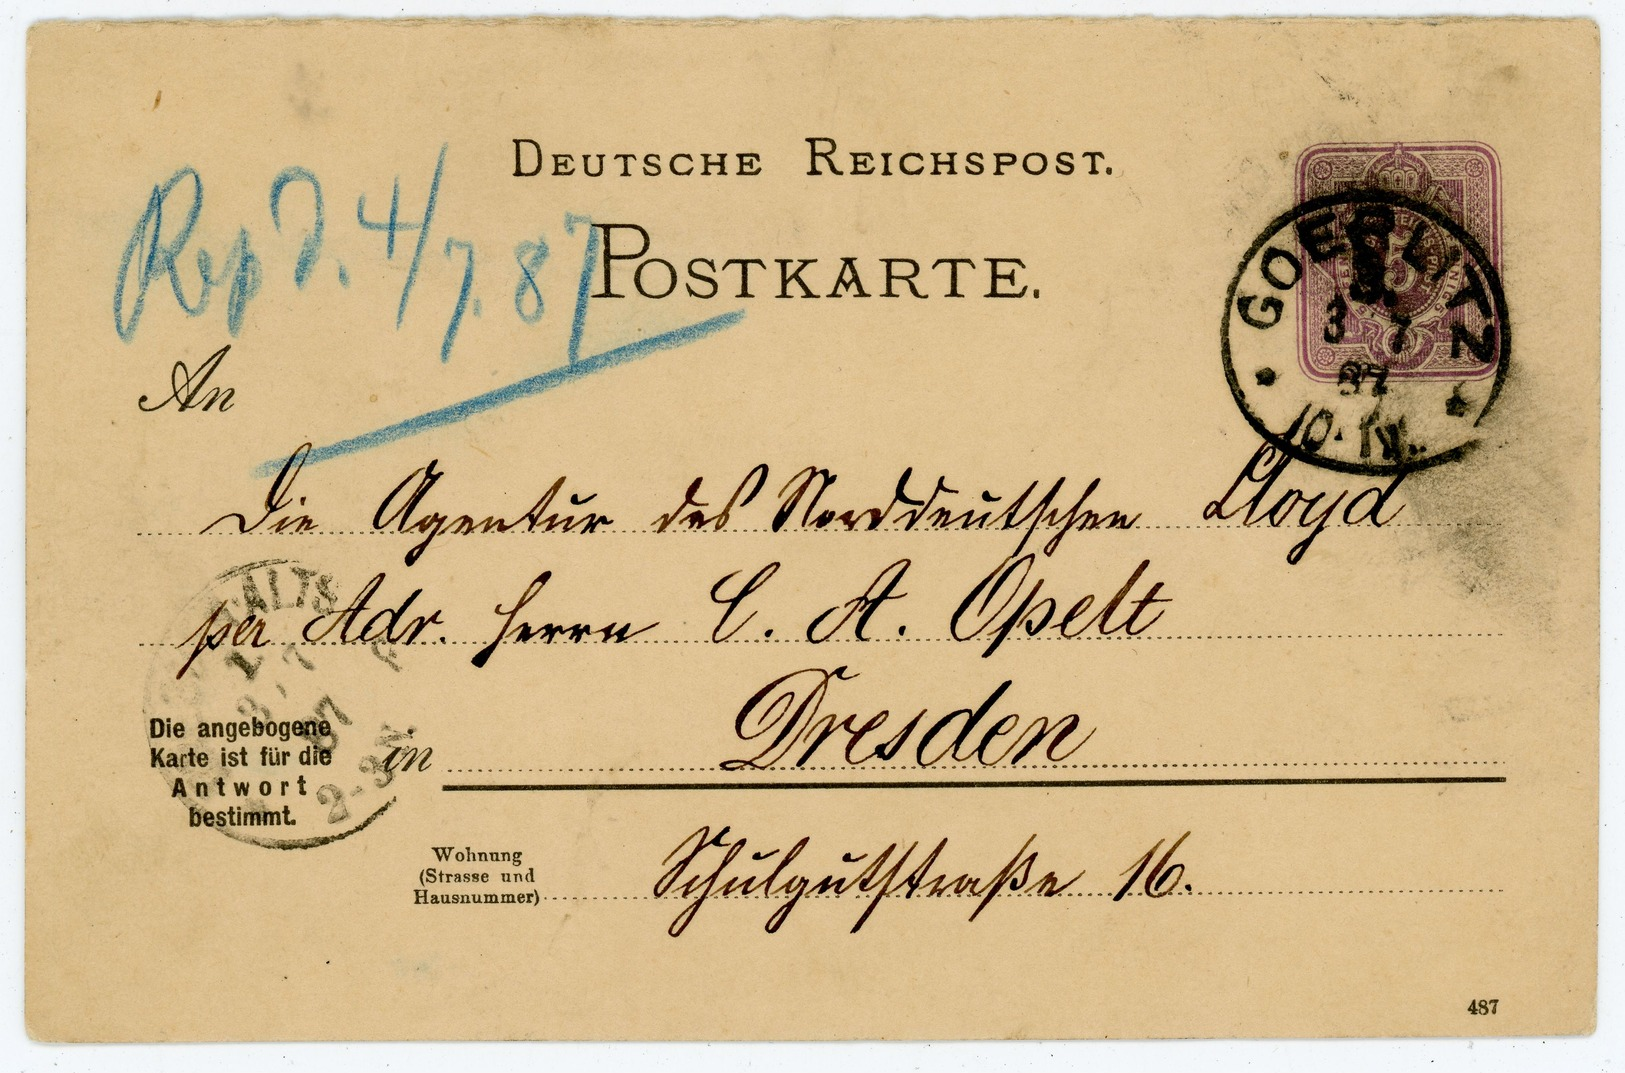 DEUTSCHE REICHSPOST.
POSTKARTE.
Rep d. 4/7. 87
GOERLITZ
3 7
87
10-11 N.
An
Die Agentur des Norddeutschen Lloyd
per Adr. Herrn C. A. Opelt
in Dresden
Die angebogene
Karte ist für die
Antwort
bestimmt.
2-3 N.
Wohnung
(Strasse und
Hausnummer)
Schulgutstraße 16.
487